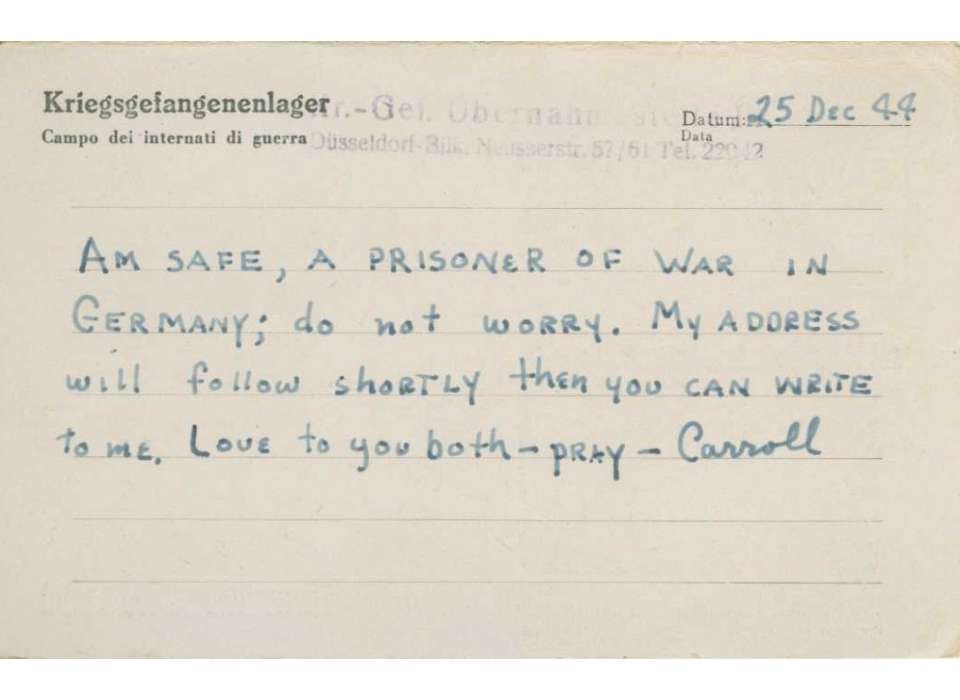 Kriegsgefangenenlager
Campo dei internati di guerra
Kr.-Gef. Übernahm
Düsseldorf-Bilk, Neusserstr. 57/61 Tel. 22942
Datum: 25 Dec 44
Data
AM SAFE, A PRISONER OF WAR IN
GERMANY; do not WORRY. My ADDRESS
will follow shortly then you CAN WRITE
to me. Love to you both – PRAY – Carroll